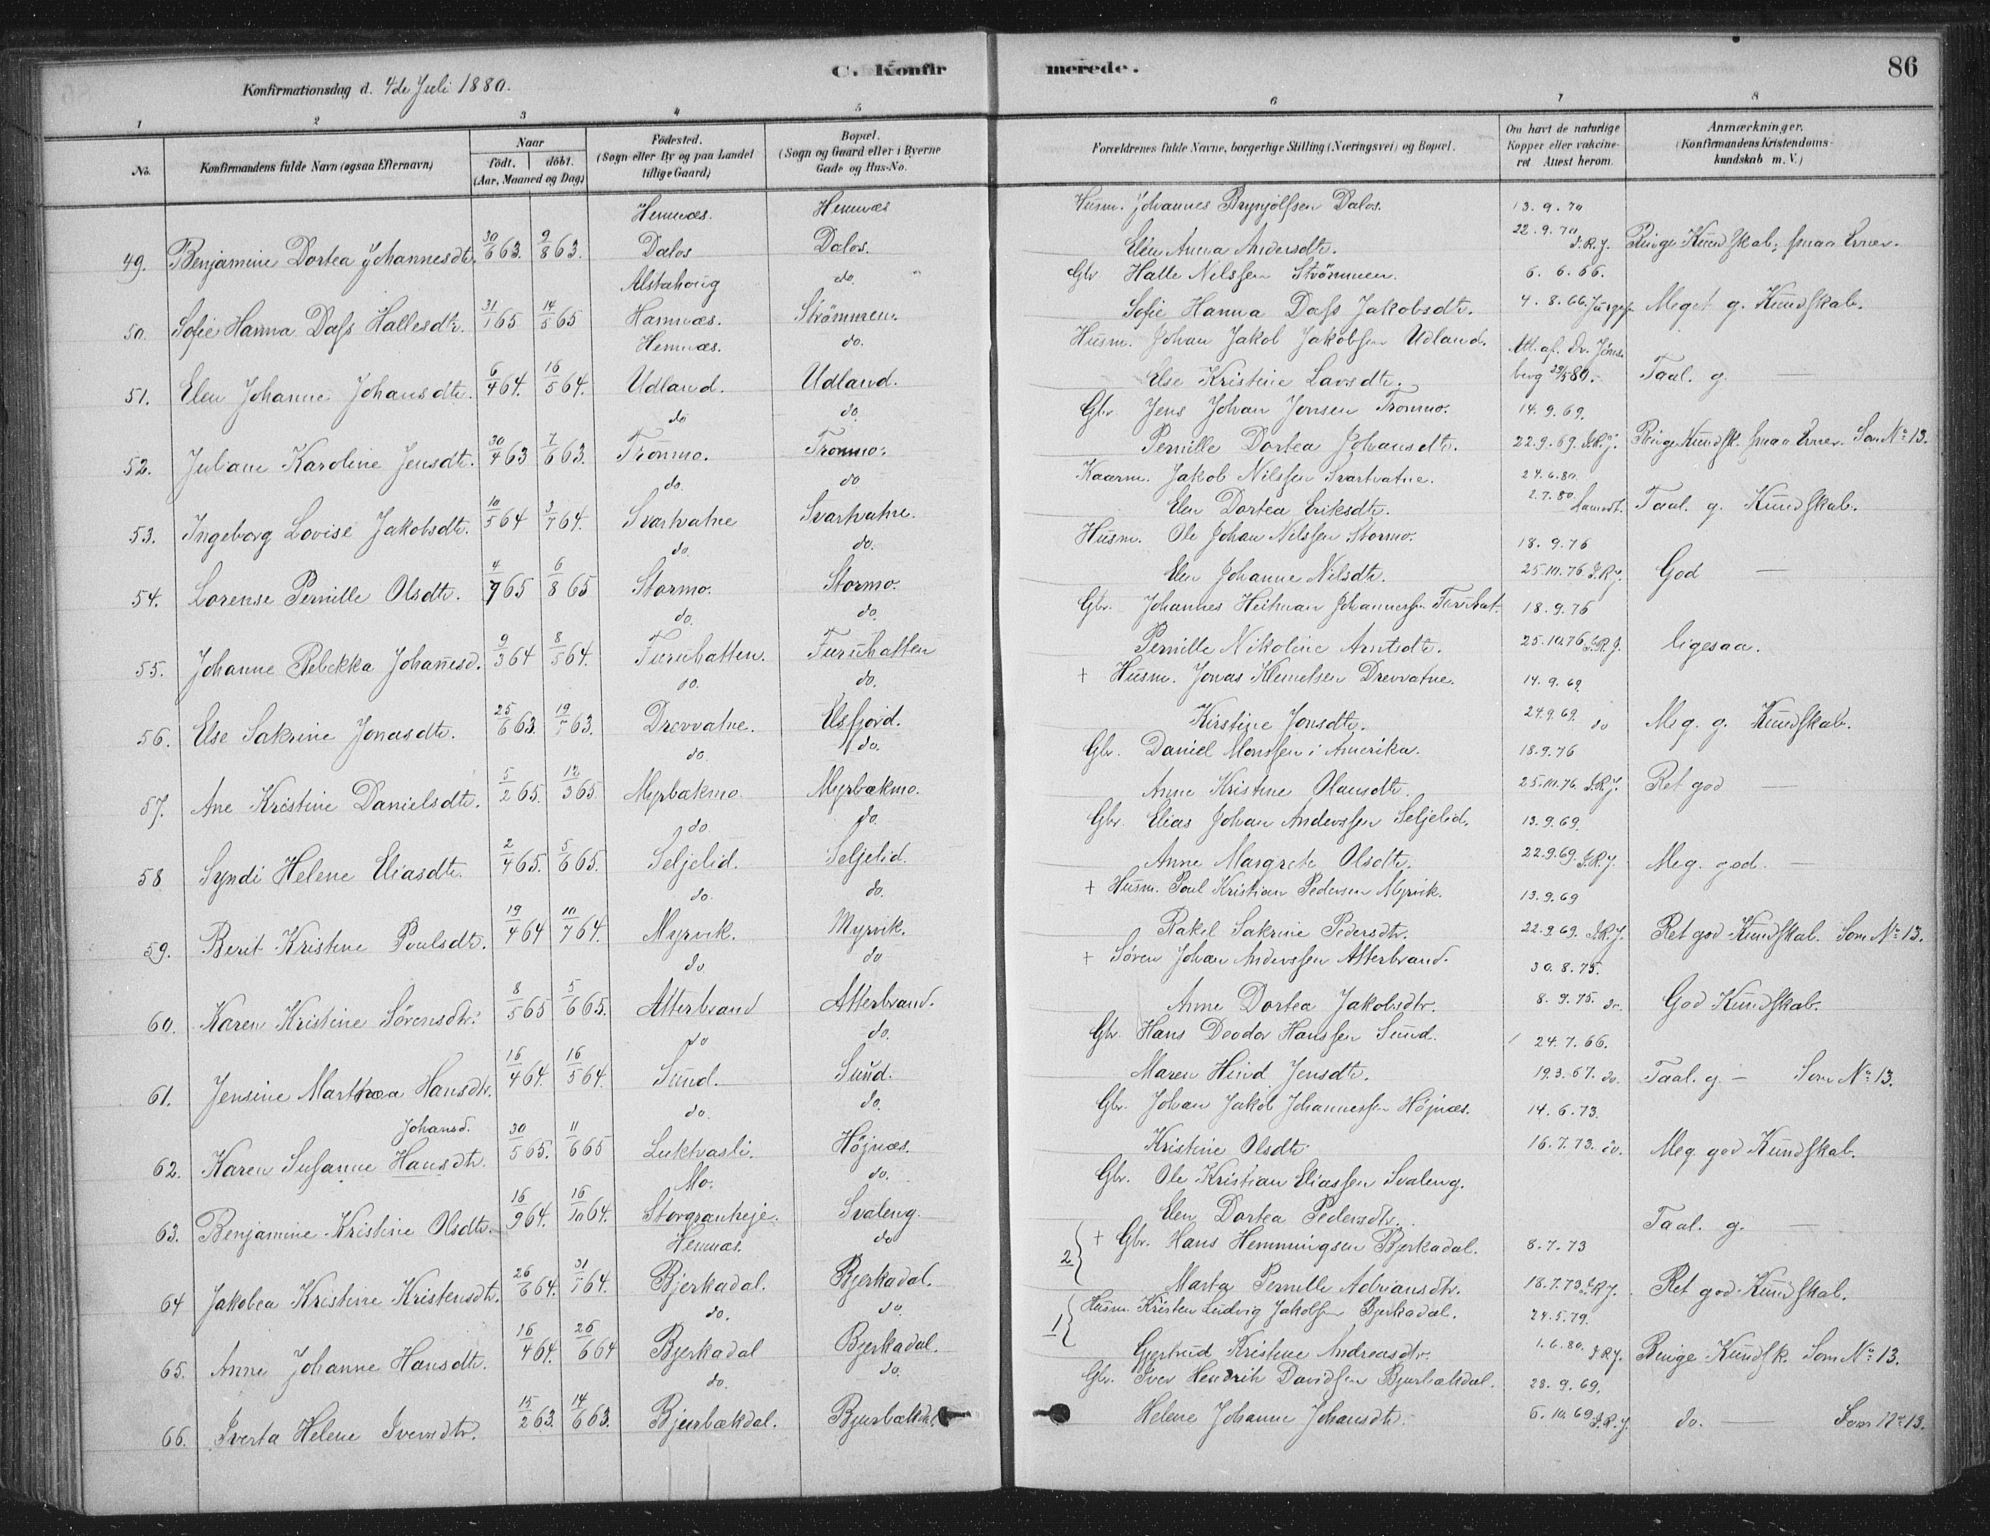 C. Konfirmerede.
86
Konfirmationsdag d. 4de Juli 1880.
1 2 3 4 5 6 7 8
No.
Konfirmandens fulde Navn (ogsaa Efternavn)
Naar
født. døbt.
(Aar, Maaned og Dag)
Fødested.
(Sogn eller By og paa Landet
tillige Gaard)
Bopæl.
(Sogn og Gaard eller i Byerne
Gade og Hus-No.
Forældrenes fulde Navne, borgerlige Stilling (Næringsvei) og Bopæl.
Om havt de naturlige
Kopper eller vakcine-
ret Attest herom.
Anmærkninger.
(Konfirmandens Kristendoms-
kundskab m. V.)
Hemnæs. Hemnæs Husm. Johannes Brynjolfsen Dalos. 13.9.70
49. Benjamine Dortea Johannesdtr. 30/6 63. 9/8 63. Dalos Dalos. Elen Anna Andersdtr. 22.9.70 J.R.J. Ringe Kundskab, smaa Evner.
Alstahoug do Gbr Halle Nilssen Strømmen. 6.6.66.
50. Sofie Hanna Dass Hallesdtr. 31/1 65 14/5 65 Hamnæs. Strømmen. Sofie Hanna Dass Jakobsdtr. 4.8.66. Meget g. Kundskab.
Hemnæs. do. Husm. Johan Jakob Jakobsen Udland. Att. af Dr. Jøns-
51. Elen Johanne Johansdtr. 6/4 64. 16/5 64. Udland. Udland. Else Kristine Larsdtr. berg 29/5 80. Taal. g. —
do do. Gbr. Jens Johan Jonsen Tronmo. 14.9.69.
52. Juliane Karoline Jensdtr. 30/4 63 7/6 63. Tronmo. Tronmo. Pernille Dortea Johansdtr. 22.9.69. J.R.J. Ringe Kundsk. smaa Evner. Som No 13.
do. do Kaarm. Jakob Nilssen Svartvatne. 24.6.80.
53. Ingeborg Lovise Jakobsdtr. 10/5 64 3/7 64. Svartvatne Svartvatne. Elen Dortea Eriksdtr. 2.7.80. Taal. g. Kundskab.
do. do. Husm. Ole Johan Nilssen Stormo. 18.9.76
54. Lorense Pernille Olsdtr. 4/7 65 6/8 65 Stormo. Stormo. Elen Johanne Nilsdtr. 25.10.76 J.R.J. God —
do. do. Gbr. Johannes Heitman Johannessen Furuhat. 18.9.76
55. Johanne Rebekka Johansd. 9/3 64 8/5 64. Furuhatten. Furuhatten Pernille Nikoline Arntsdtr. 25.10.76 J.R.J. ligesaa.
do. do. + Husm. Jonas Klemetsen Drevvatne. 14.9.69.
56. Else Sakrine Jonasdtr. 25/6 63. 19/7 63. Drevvatne. Elsfjord. Kirstine Jonsdtr. 24.9.69. do Meg. g. Kundskab.
do do. Gbr. Daniel Monssen i Amerika. 18.9.76
57. Ane Kristine Danielsdtr. 5/2 65. 12/3 65. Myrbækmo. Myrbækmo. Anne Kristine Olausdtr. 25.10.76. J.R.J. Ret god —
do do. Gbr. Elias Johan Anderssen Seljelid. 13.9.69.
58 Syndi Helene Eliasdtr. 2/4 65. 5/6 65. Seljelid. Seljelid. Anne Margrete Olsdtr. 22.9.69 J.R.J. Meg. god. —
do. do. + Husm. Poul Kristian Pedersen Myrvik. 13.9.69
59. Berit Kristine Poulsdtr. 19/4 64 10/7 64. Myrvik. Myrvik. Rakel Sakrine Pedersdtr. 22.9.69. J.R.J. Ret god Kundskab. Som No 13.
do do + Søren Johan Anderssen Atterbrand. 30.8.75.
60. Karen Kristine Sørensdtr. 8/5 65 5/6 65. Atterbrand Atterbrand. Anne Dortea Jakobsdtr. 8.9.75. do. God Kundskab.
do do. Gbr. Hans Deodor Hanssen Sund. 24.7.66.
61. Jensine Marthea Hansdtr. 16/4 64. 16/5 64. Sund. Sund. Maren Hind Jensdtr. 19.3.67. do. Taal. g. — Som No 13.
do. do. Gbr. Johan Jakob Johannessen Højnæs. 14.6.73.
Johansd.
62. Karen Susanne Hansdtr. 30/5 65. 11/6 65 Lukvasli. Højnæs. Kristine Olsdtr. 16.7.73. do. Meg. god Kundskab.
Mo. do. Gbr. Ole Kristian Eliassen Svaleng.
63. Benjamine Kristine Olsdtr. 16/9 64. 16/10 64. Storgranheje. Svaleng. Elen Dortea Pedersdtr. Taal. g. —
Hemnæs. do 2 + Gbr. Hans Hemmingsen Bjerkadal. 8.7.73
64 Jakobea Kristine Kristensdtr. 26/6 64. 31/7 64. Bjerkadal. Bjerkadal. Marta Pernille Adriansdtr. 18.7.73 J.R.J. Ret god Kundskab.
do. do. 1 Husm. Kristen Ludvig Jakobsen Bjerkadal. 24.5.79.
65. Anne Johanne Hansdtr. 16/4 64. 26/6 64 Bjerkadal Bjerkadal. Gjertrud Kristine Andreasdtr. 1.6.80. J.R.J. Ringe Kundsk. Som No 13.
do. do. Gbr. Iver Hendrik Davidsen Bjurbækdal. 28.9.69.
66. Iverta Helene Iversdtr. 15/2 63. 14/6 63. Bjurbækdal. Bjurbækdal Helene Johanne Johansdtr. 6.10.69 J.R.J. do. — Som No 13.